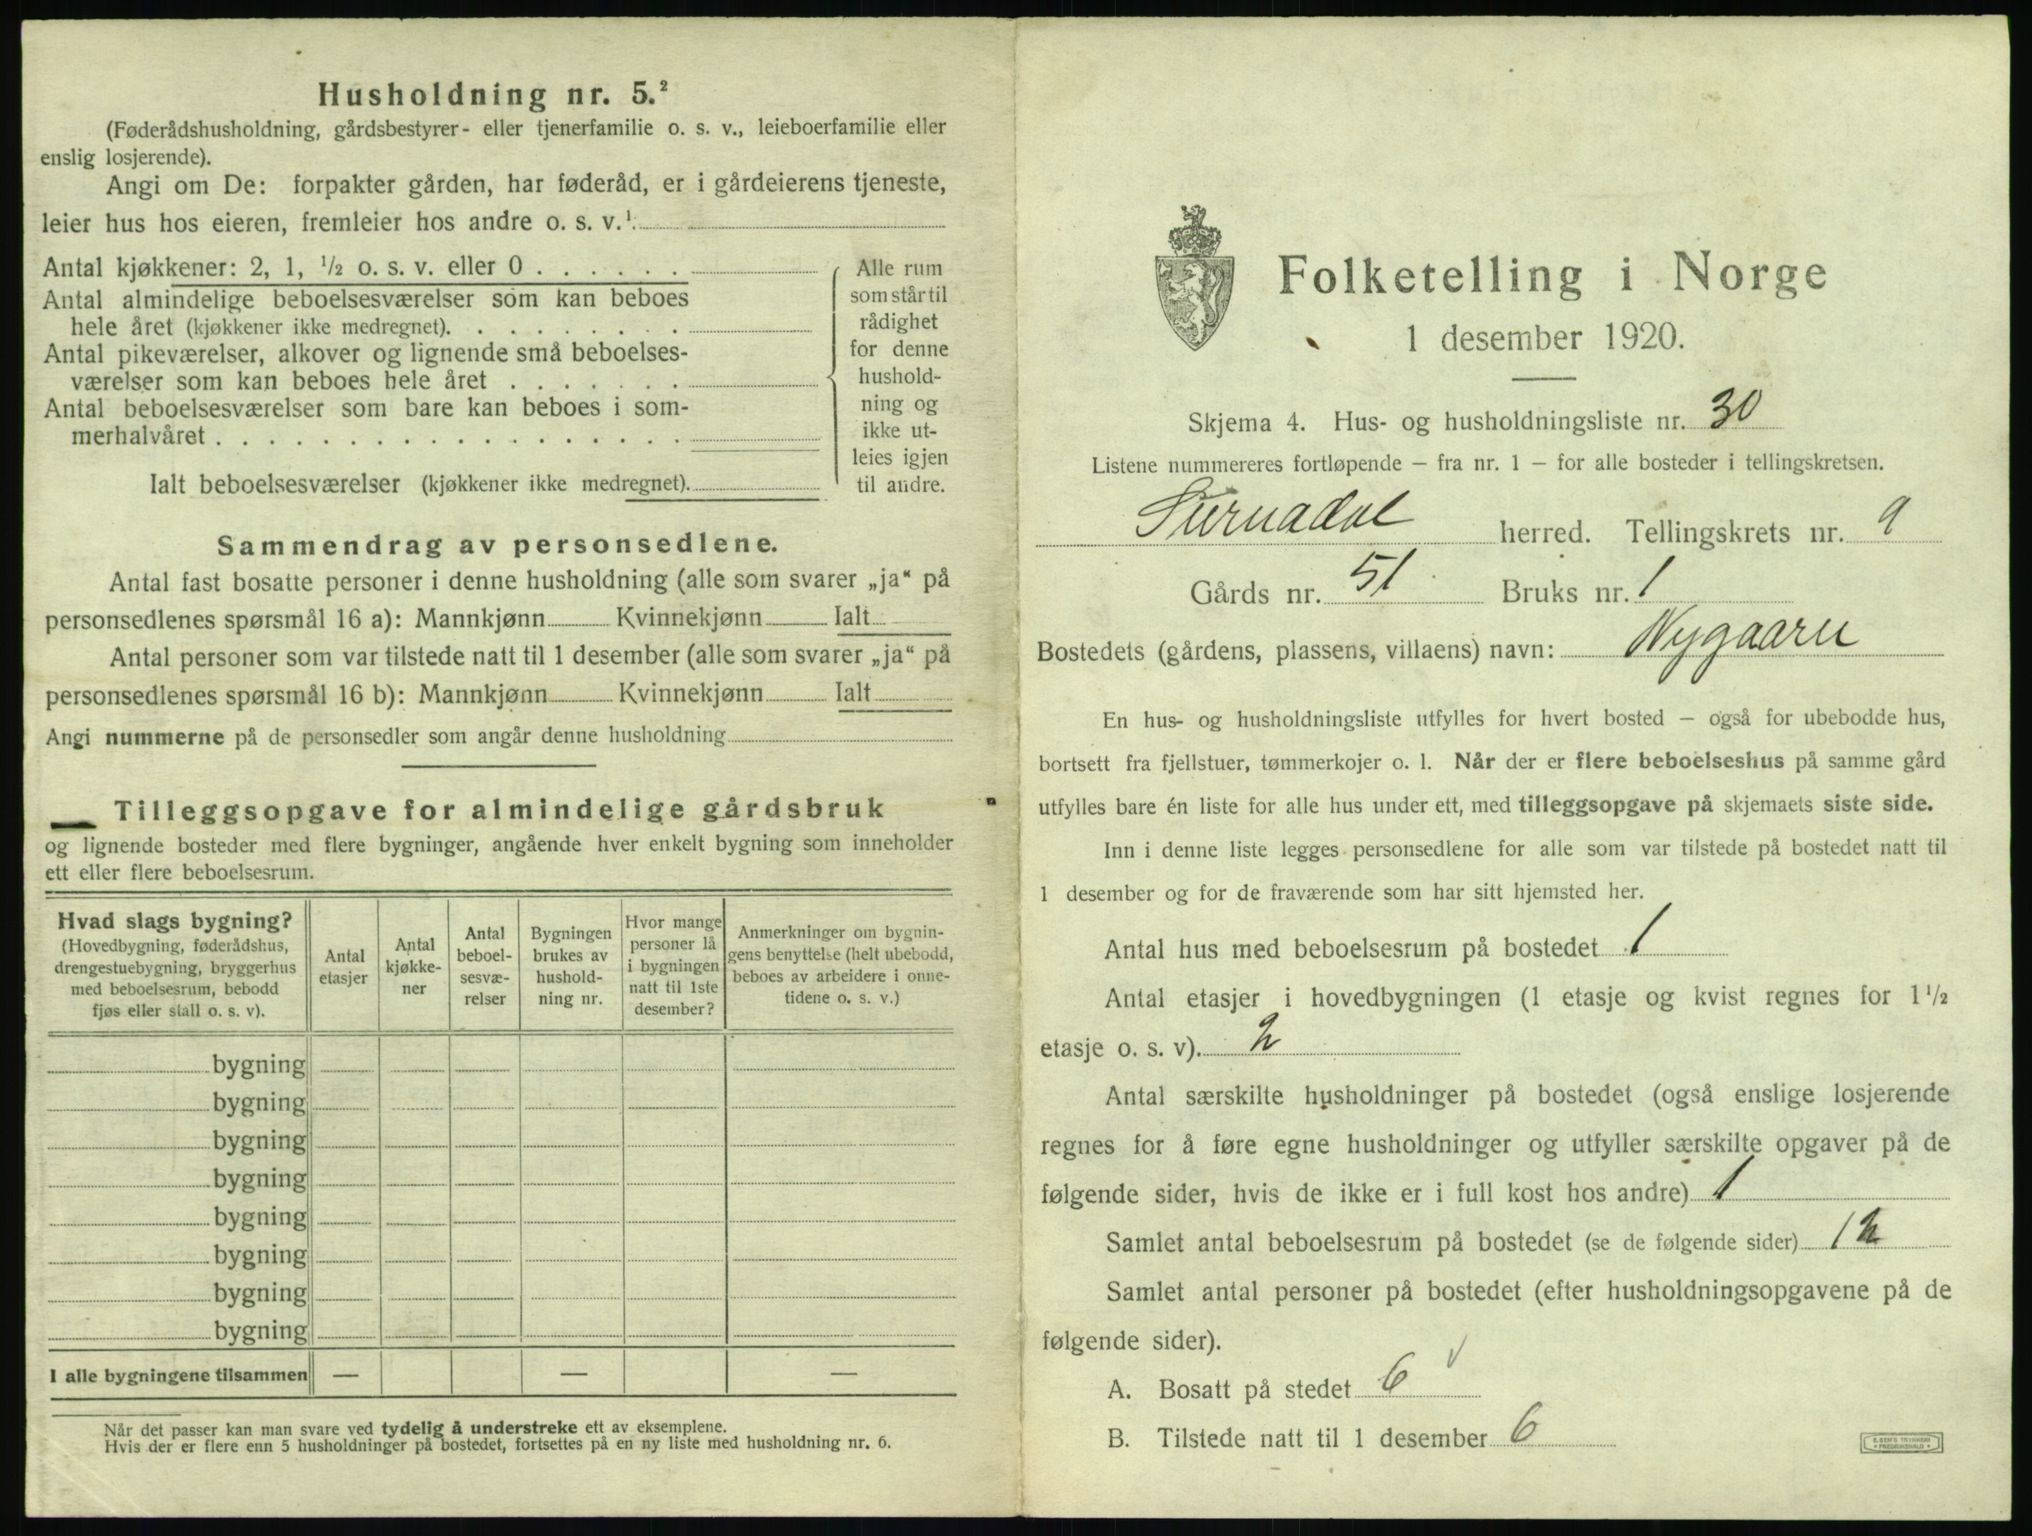 Husholdning nr. 5.²
(Føderådshusholdning, gårdsbestyrer- eller tjenerfamilie o. s. v., leieboerfamilie eller
enslig losjerende).
Angi om De: forpakter gården, har føderåd, er i gårdeierens tjeneste,
leier hus hos eieren, fremleier hos andre o. s. v.¹
Antal kjøkkener: 2, 1, ½ o. s. v. eller 0 . . . . . .
Antal almindelige beboelsesværelser som kan beboes
hele året (kjøkkener ikke medregnet). . . . . . . . .
Antal pikeværelser, alkover og lignende små beboelses-
værelser som kan beboes hele året . . . . . . .
Antal beboelsesværelser som bare kan beboes i som-
merhalvåret . . . . . . . . . . . . . . . . . .
Ialt beboelsesværelser (kjøkkener ikke medregnet).
Alle rum
som står til
rådighet
for denne
hushold-
ning og
ikke ut-
leies igjen
til andre.
Sammendrag av personsedlene.
Antal fast bosatte personer i denne husholdning (alle som svarer „ja“ på
personsedlenes spørsmål 16 a): Mannkjønn Kvinnekjønn Ialt
Antal personer som var tilstede natt til 1 desember (alle som svarer „ja“ på
personsedlenes spørsmål 16 b): Mannkjønn Kvinnekjønn Ialt
Angi nummerne på de personsedler som angår denne husholdning
Tilleggsopgave for almindelige gårdsbruk
og lignende bosteder med flere bygninger, angående hver enkelt bygning som inneholder
ett eller flere beboelsesrum.
Hvad slags bygning?
(Hovedbygning, føderådshus,
drengestuebygning, bryggerhus
med beboelsesrum, bebodd
fjøs eller stall o. s. v).
Antal
etasjer
Antal
kjøkke-
ner
Antal
beboel-
sesvæ-
relser
Bygningen
brukes av
hushold-
ning nr.
Hvor mange
personer lå
i bygningen
natt til 1ste
desember?
Anmerkninger om bygnin-
gens benyttelse (helt ubebodd,
beboes av arbeidere i onne-
tidene o. s. v.)
bygning
bygning
bygning
bygning
bygning
bygning
bygning
bygning
I alle bygningene tilsammen — — —
Når det passer kan man svare ved tydelig å understreke ett av eksemplene.
Hvis der er flere enn 5 husholdninger på bostedet, fortsettes på en ny liste med husholdning nr. 6.
Folketelling i Norge
1 desember 1920.
Skjema 4. Hus- og husholdningsliste nr. 30
Listene nummereres fortløpende – fra nr. 1 – for alle bosteder i tellingskretsen.
Surnadal herred. Tellingskrets nr. 9
Gårds nr. 51 Bruks nr. 1
Bostedets (gårdens, plassens, villaens) navn: Nygaard
En hus- og husholdningsliste utfylles for hvert bosted – også for ubebodde hus,
bortsett fra fjellstuer, tømmerkojer o. l. Når der er flere beboelseshus på samme gård
utfylles bare én liste for alle hus under ett, med tilleggsopgave på skjemaets siste side.
Inn i denne liste legges personsedlene for alle som var tilstede på bostedet natt til
1 desember og for de fraværende som har sitt hjemsted her.
Antal hus med beboelsesrum på bostedet 1
Antal etasjer i hovedbygningen (1 etasje og kvist regnes for 1 ½
etasje o. s. v). 2
Antal særskilte husholdninger på bostedet (også enslige losjerende
regnes for å føre egne husholdninger og utfyller særskilte opgaver på de
følgende sider, hvis de ikke er i full kost hos andre) 1
Samlet antal beboelsesrum på bostedet (se de følgende sider) 12
Samlet antal personer på bostedet (efter husholdningsopgavene på de
følgende sider).
A. Bosatt på stedet 6 ✓
B. Tilstede natt til 1 desember 6